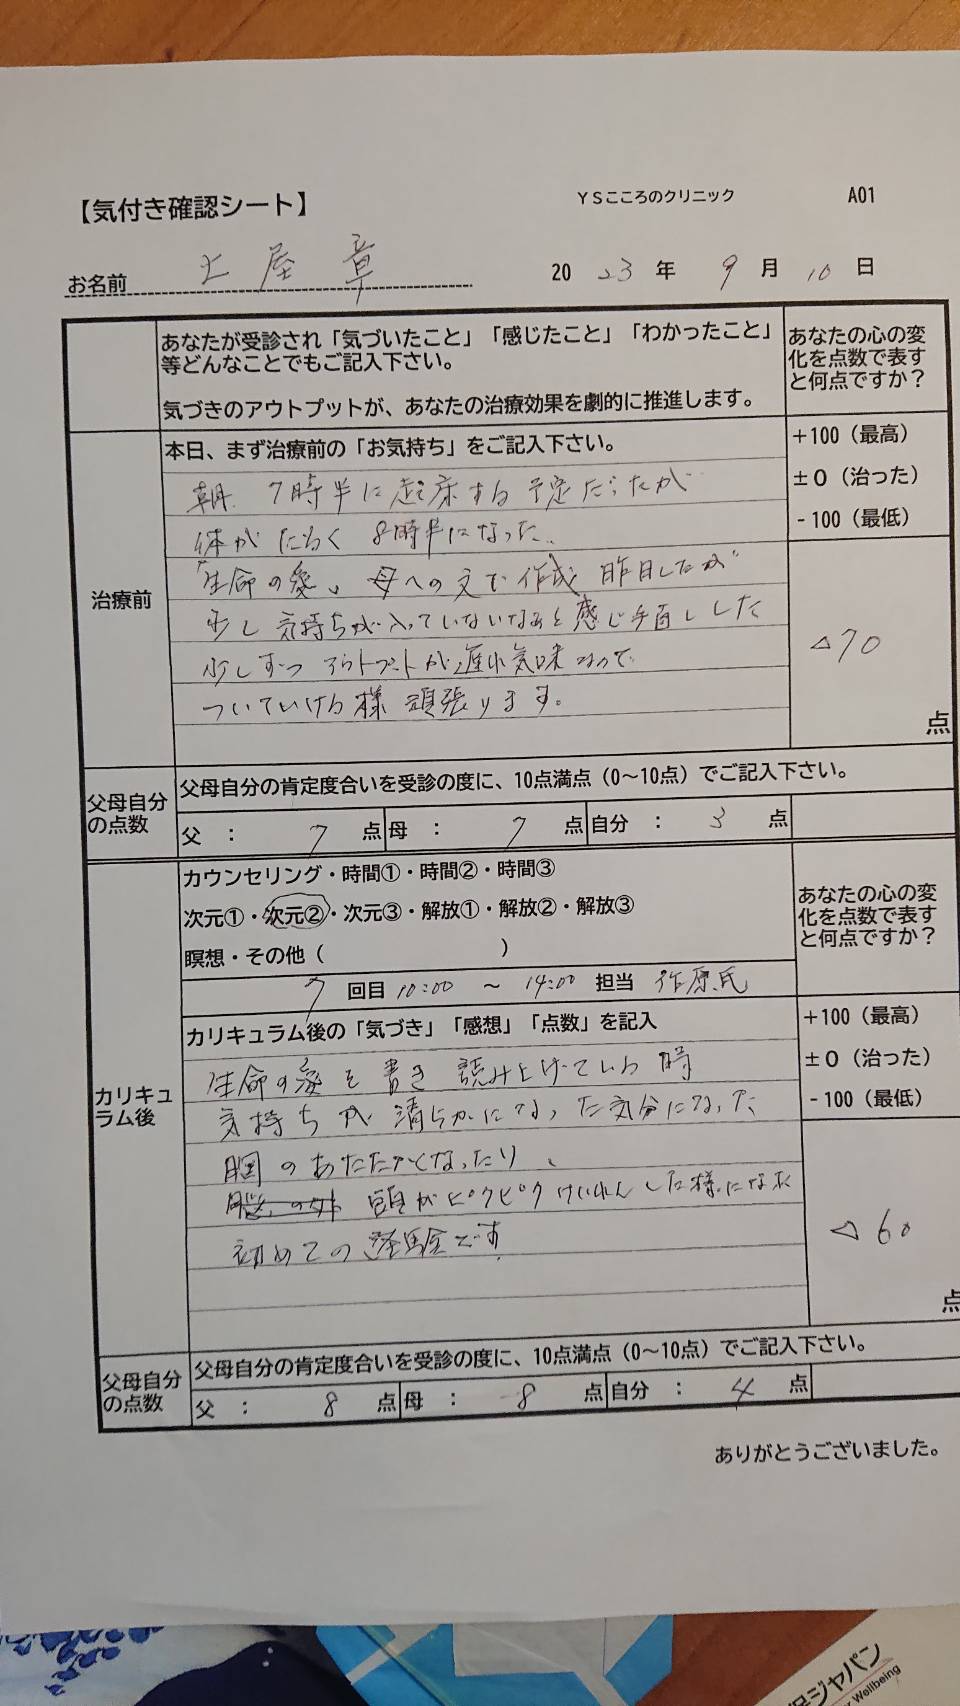 【気付き確認シート】 YSこころのクリニック A01
お名前 土屋章 2023年9月10日
あなたが受診され「気づいたこと」「感じたこと」「わかったこと」
等どんなことでもご記入下さい。
気づきのアウトプットが、あなたの治療効果を劇的に推進します。
あなたの心の変
化を点数で表す
と何点ですか？
治療前
本日、まず治療前の「お気持ち」をご記入下さい。
朝 7時半に起床する予定だったが
体がだるく 8時半になった。
"生命の愛" 母への文で作成 昨日したが
少し気持ちが入っていないなぁと感じ手直しした
少しずつ アウトプットが遅れ気味なので
ついていける様 頑張ります。
+100（最高）
±0（治った）
-100（最低）
△70
点
父母自分
の点数
父母自分の肯定度合いを受診の度に、10点満点（0～10点）でご記入下さい。
父 ： 7 点 母 ： 7 点 自分 ： 3 点
カリキュ
ラム後
カウンセリング・時間①・時間②・時間③
次元①・次元②・次元③・解放①・解放②・解放③
瞑想・その他（ ）
7 回目 10:00 ～ 14:00 担当 作原氏
あなたの心の変
化を点数で表す
と何点ですか？
カリキュラム後の「気づき」「感想」「点数」を記入
生命の愛を書き 読み上げている時
気持ちが清らかになった気分になった
胸のあたたかくなったり、
頭がピクピクけいれんした様になれ
初めての経験です
+100（最高）
±0（治った）
-100（最低）
△60
点
父母自分
の点数
父母自分の肯定度合いを受診の度に、10点満点（0～10点）でご記入下さい。
父 ： 8 点 母 ： 8 点 自分 ： 4 点
ありがとうございました。
ジャパン
Wellbeing